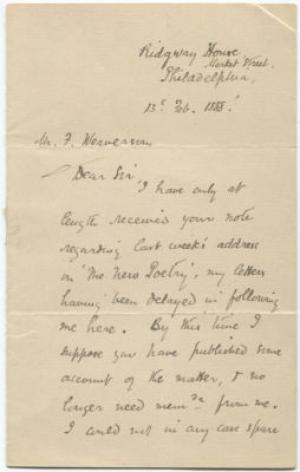 Ridgway House,
Market Street.
Philadelphia.
13th Feb. 1888.
Mr. F.
Dear Sir,
I have only at
length received your note
regarding last week's address
on 'The New Poetry', my letters
having been delayed in following
me here. By this time I
suppose you have published some
account of the matter, & no
longer need memda from me.
I could not in any case spare